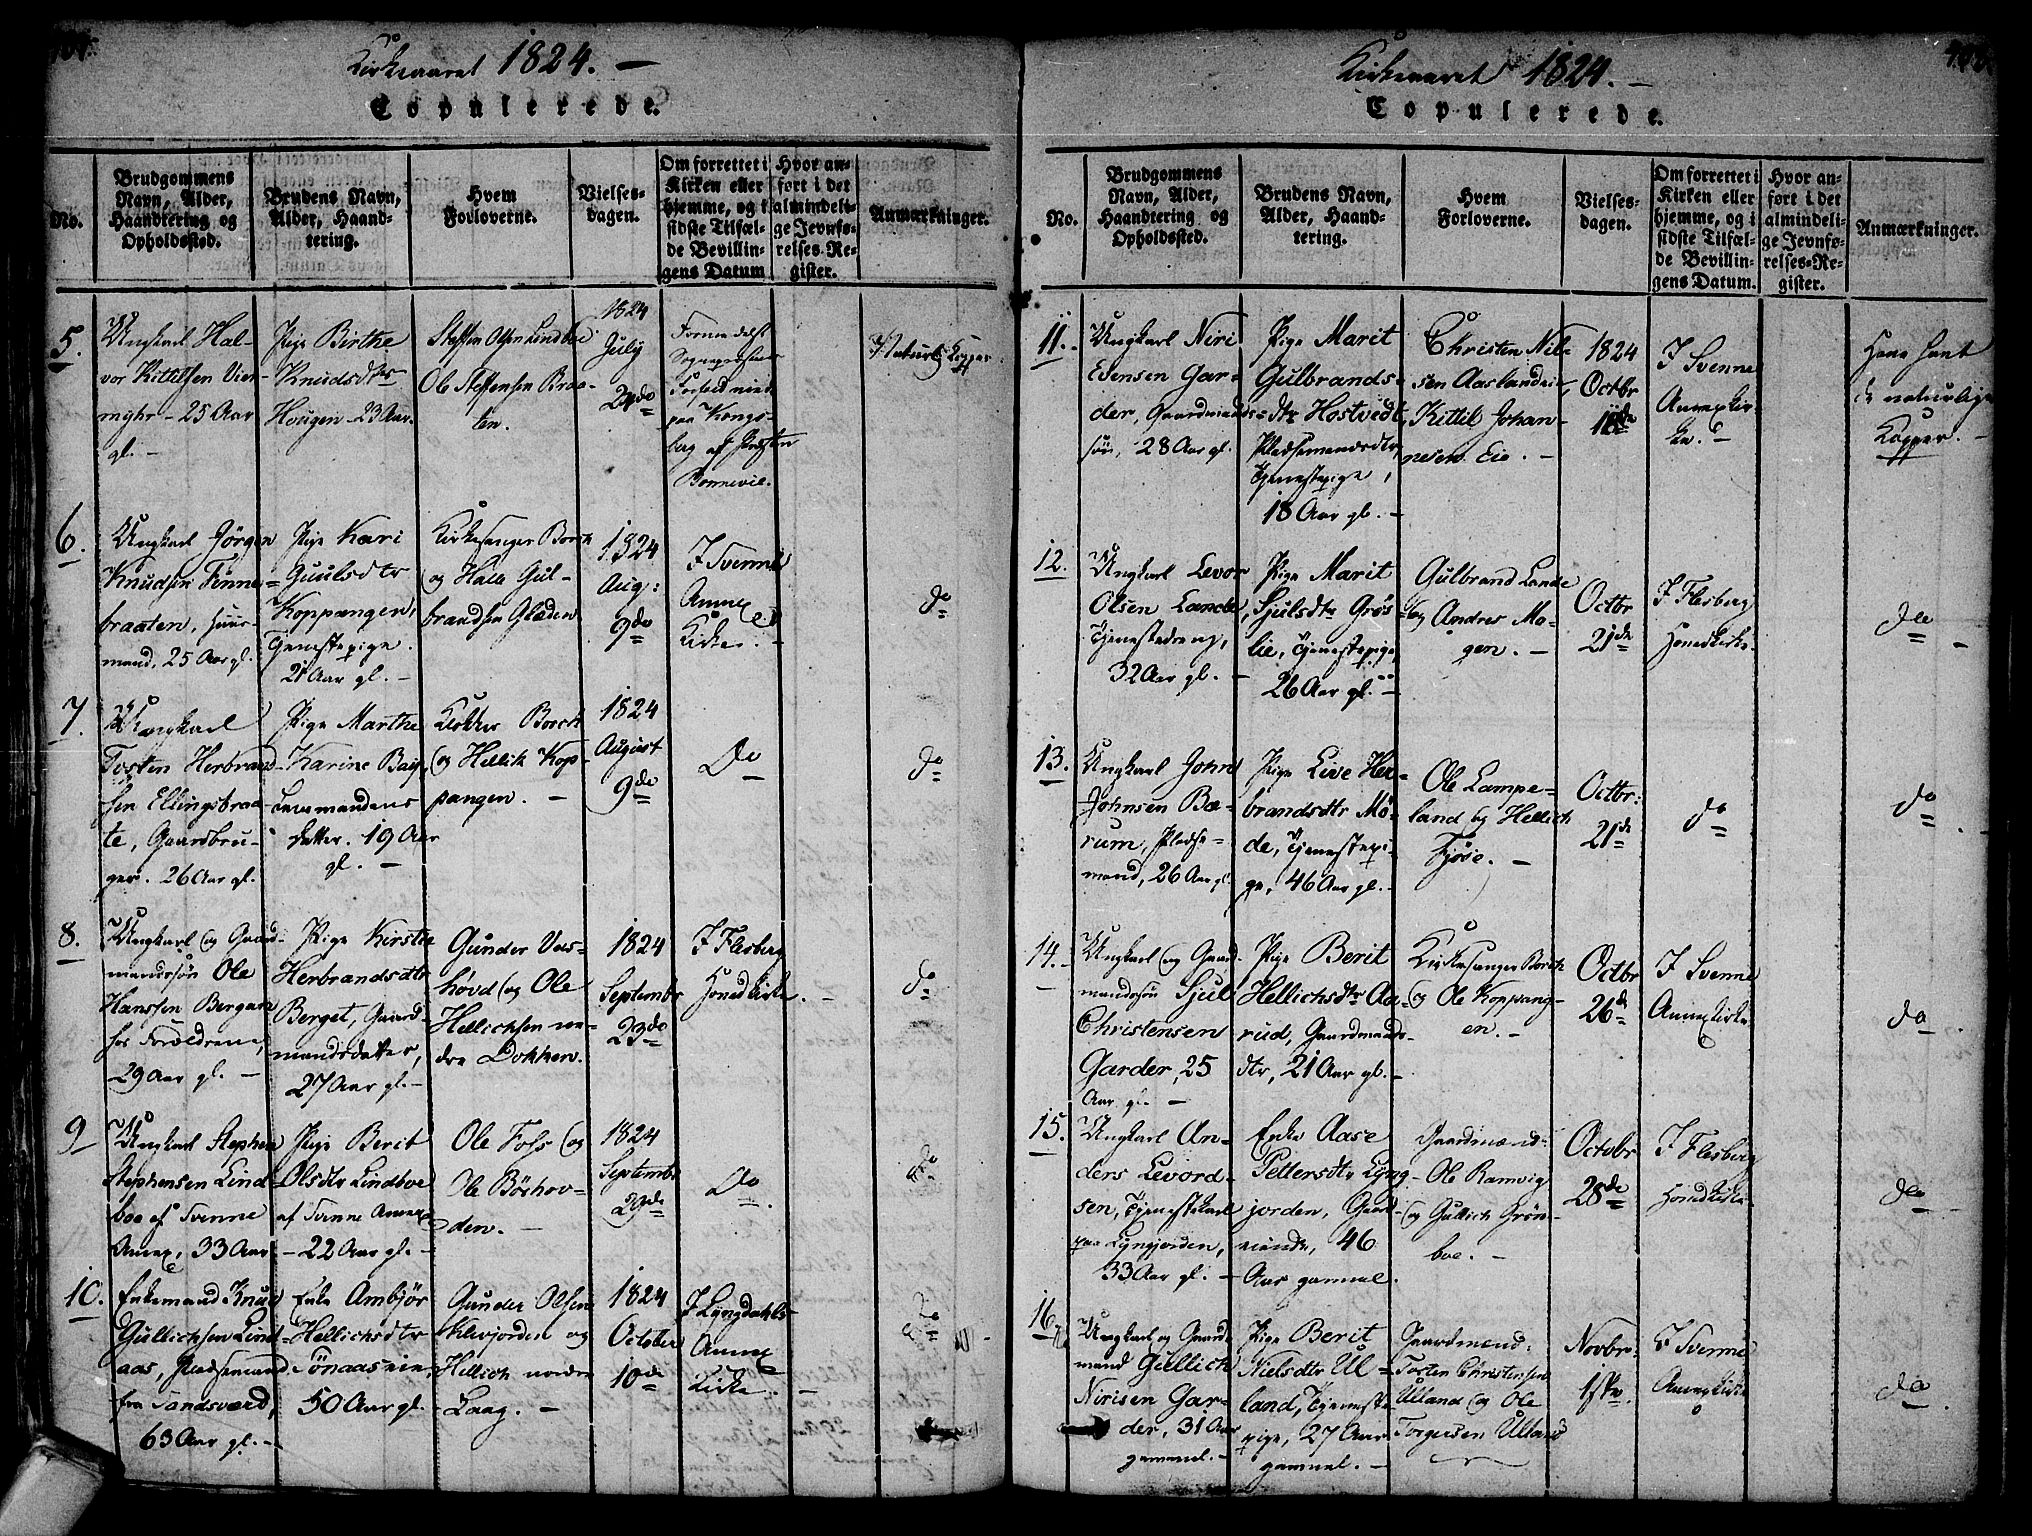 Kirkeaaret 1824. —
Copulerede.
No.
Brudgommens
Navn, Alder,
Haandtering og
Opholdssted.
Brudens Navn,
Alder, Haand-
tering.
Hvem
Forloverne.
Vielses-
dagen.
Om forrettet i
Kirken eller
hjemme, og i
sidste Tilfæl-
de Bevillin-
gens Datum
Hvor an-
ført i det
almindeli-
ge Jevnfø-
relses-Re-
gister.
Anmærkninger.
5.
Ungkarl Hal-
vor Kittilsen Vier-
myhr – 25 Aar
gl. –
Pige Birthe
Knudsdtr
Hougen – 23 Aar.
Steffen Olsen Lindboe
Ole Steffensen Braa-
ten.
1824
July
24de
Formedelst
Forbed
paa Kongs-
berg af
Bonnevie.
Naturl. Kopper
6.
Ungkarl Jørgen
Knudsen Finne-
braaten, Huus-
mand, 25 Aar gl.
Pige Kari
Guulsdtr
Koppangen,
Tjenestepige.
21 Aar gl. –
Kirkesanger Borch
og Halle Gul-
brandsen Gladen
1824
Aug:
9de
I Svenne
Annex
Kirke. –
do
7.
Ungkarl
Tosten Herbrand-
sen Ellingsbraa-
te, Gaardbru-
ger. 26 Aar gl.
Pige Marthe
Karine
Lensmandens
Datter. 19 Aar
gl. –
Klokker Borch
og Hellik Kop-
pangen. –
1824
August
9de
Do
do
8.
Ungkarl og Gaard-
mandssøn Ole
Hanssen Bergan
hos Forældrene,
29 Aar gl. –
Pige Kirstie
Herbrandsdtr
Berget, Gaard-
mandsdatter,
27 Aar gl. –
Gunder Vas-
hovd og Ole
Hellichsen ne-
dre Dokken.
1824
Septembr
23de
I Flesberg
Hovedkirke. –
do
9
Ungkarl Stephen
Stephensen Lind-
boe af Svenne
Annex, 33 Aar
Pige Berit
Olsdtr Lindboe
af Svenne Annex
– 22 Aar gl. –
Ole Foss og
Ole Børhov-
den. –
1824
Septembr
29de
Do
do
10.
Enkemand Knud
Gullichsen Lind-
aas, Pladsemand
fra Sandsværd,
63 Aar gl. –
Enke Ambjør
Hellichsdtr
Tønaaseie,
50 Aar gl.
Gunder Olsen
Klevjorden og
Hellich nordre
Laag. –
1824
October
10de
I Lyngdahls
Annex
Kirke. –
Do
Kirkeaaret 1824. –
Copulerede.
No.
Brudgommens
Navn, Alder,
Haandtering og
Opholdssted.
Brudens Navn,
Alder, Haand-
tering.
Hvem
Forloverne.
Vielses-
dagen.
Om forrettet i
Kirken eller
hjemme, og i
sidste Tilfæl-
de Bevillin-
gens Datum.
Hvor an-
ført i det
almindeli-
ge Jevnfø-
relses-Re-
gister.
Anmærkninger.
11.
Ungkarl Niri
Evensen Gar-
der, Gaardmands-
søn, 28 Aar gl.
Pige Marit
Gulbrands-
dtr Hostvedt,
Pladsemandsdtr,
Tjenestepige,
18 Aar gl. –
Christen Nil-
sen Aaslandeie,
Kittil Johan-
nesen Eie. –
1824
Octbr
I Svenne
Annexkir-
ke. –
Have havt
de naturlige
Kopper. –
12.
Ungkarl Levor
Olsen Lande,
Tjenestedreng,
32 Aar gl. –
Pige Marit
Sjulsdtr Grøs-
lie, Tjenestepige,
26 Aar gl. –
Gulbrand Lande
og Andres Mo-
gen. –
Octbr
21de
I Flesberg
Hovedkirke.
do
13.
Ungkarl John
Johnsen Bæ-
rum, Pladse-
mand, 26 Aar gl.
Pige Live Her-
brandsdtr Mø-
de, Tjenestepi-
ge, 46 Aar gl. –
Ole Lampe-
land og Hellich
Fjøse. –
Octbr:
21de
do
do
14.
Ungkarl og Gaard-
mandssøn Sjul
Christensen
Garder, 25
Aar gl. –
Pige Berit
Hellichsdtr Aa-
rud, Gaardmands-
dtr, 21 Aar gl. –
Kirkesanger Borch
og Ole Koppang-
en. –
Octbr
26de
I Svenne
Annexkirke
do
15.
Ungkarl An-
ders Levord-
sen, Tjenestekarl
paa Lyngjorden,
33 Aar gl. –
Enke Aase
Pettersdtr Lyng-
jorden, Gaard-
46
Aar gammel.
Gaardmænd:
Ole Ramvig
og Gullich Grøn-
boe. –
Octobr
28de
I Flesberg
Hovedkirke
do
16.
Ungkarl og Gaard-
mand Gullich
Nirisen Gar-
der, 31 Aar
gammel. –
Pige Berit
Nielsdtr Ul-
land, Tjeneste-
pige, 27 Aar
gammel. –
Gaardmænd:
Torsten Christensen
Ulland og Ole
Torgersen Ulland
Novbr.
1ste.
I Svenne
Annexkirke
do